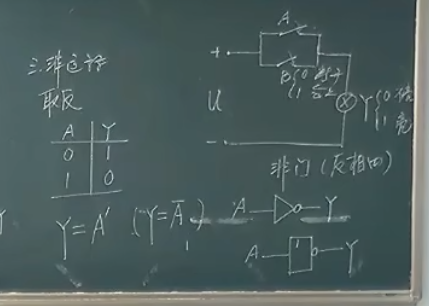 三.非运算
取反
A Y
0 1
1 0
Y=A' (Y=A̅)
A
+
U
-
B {0 断开
1 合上
Y {0 不亮
1 亮
非门(反相四)
A Y
A 1 Y
Y